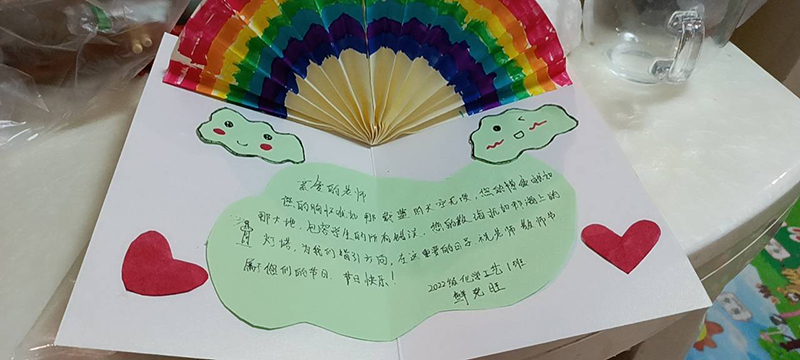 亲爱的老师
您的胸怀犹如那蔚蓝的天空无限,您的博爱犹如
那大地,包容学生的所有错误,您的教诲犹如那海上的
灯塔,为我们指引方向,在这重要的日子,祝老师教师节
属于您们的节日,节日快乐!
2022级化学工艺1班